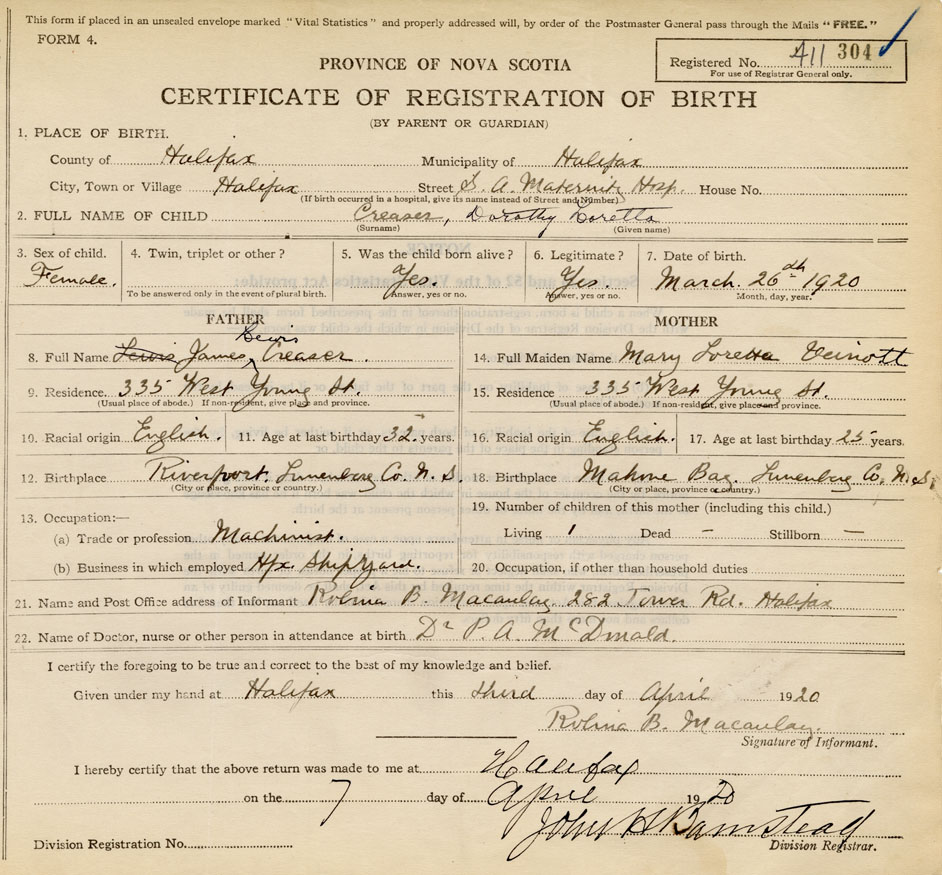 This form if placed in an unsealed envelope marked "Vital Statistics" and properly addressed will, by order of the Postmaster General pass through the Mails "FREE."
FORM 4.
Registered No. 411 304
For use of Registrar General only.
PROVINCE OF NOVA SCOTIA
CERTIFICATE OF REGISTRATION OF BIRTH
(BY PARENT OR GUARDIAN)
1. PLACE OF BIRTH.
County of Halifax Municipality of Halifax
City, Town or Village Halifax Street S. A. Maternity Hosp. House No.
(If birth occurred in a hospital, give its name instead of Street and Number)
2. FULL NAME OF CHILD Creaser, Dorothy Loretta
(Surname) (Given name)
3. Sex of child. 4. Twin, triplet or other? 5. Was the child born alive? 6. Legitimate? 7. Date of birth.
Female. Yes. Yes. March. 26th 1920
To be answered only in the event of plural birth. Answer, yes or no. Answer, yes or no. Month, day, year.
FATHER MOTHER
Lewis
8. Full Name Lewis James Creaser. 14. Full Maiden Name Mary Loretta Veinott
9. Residence. 335 West Young St. 15. Residence. 335 West Young St.
(Usual place of abode.) If non-resident, give place and province. (Usual place of abode.) If non-resident, give place and province.
10. Racial origin English. 11. Age at last birthday 32. years. 16. Racial origin English. 17. Age at last birthday 25 years.
12. Birthplace Riverport. Lunenberg Co. N. S. 18. Birthplace Mahone Bay. Lunenberg Co. N. S.
(City or place, province or country.) (City or place, province or country.)
13. Occupation:— 19. Number of children of this mother (including this child.)
(a) Trade or profession Machinist. Living 1 Dead – Stillborn —
(b) Business in which employed Hfx Shipyard. 20. Occupation, if other than household duties
21. Name and Post Office address of Informant Rolina B. Macaulay. 282 Tower Rd. Halifax
22. Name of Doctor, nurse or other person in attendance at birth Dr P. A. McDonald.
I certify the foregoing to be true and correct to the best of my knowledge and belief.
Given under my hand at Halifax this third day of April 1920
Rolina B. Macaulay.
Signature of Informant.
I hereby certify that the above return was made to me at Halifax
on the 7 day of April 1920
John H Barnstead
Division Registration No. Division Registrar.